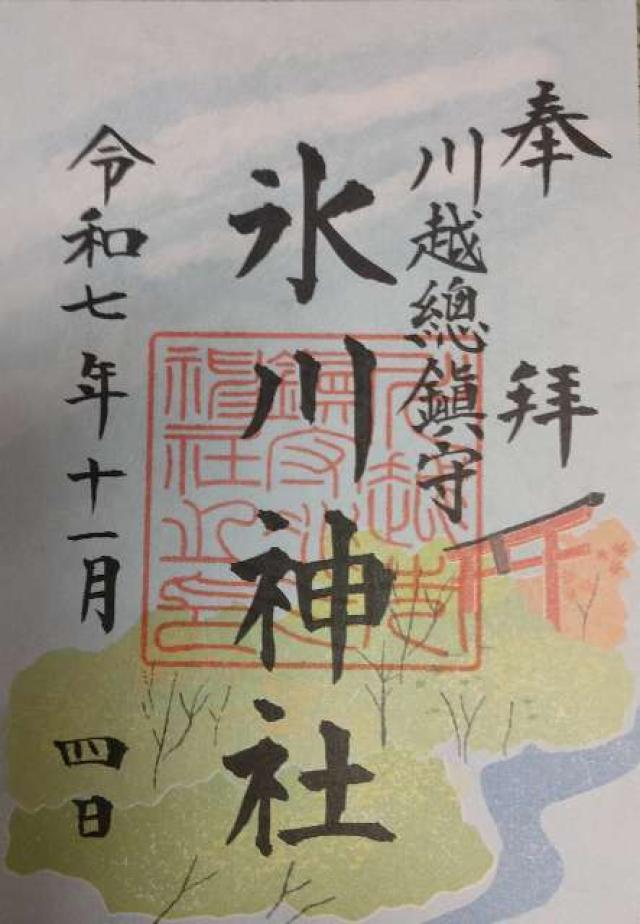 奉拝
川越總鎮守
氷川神社
令和七年十一月四日